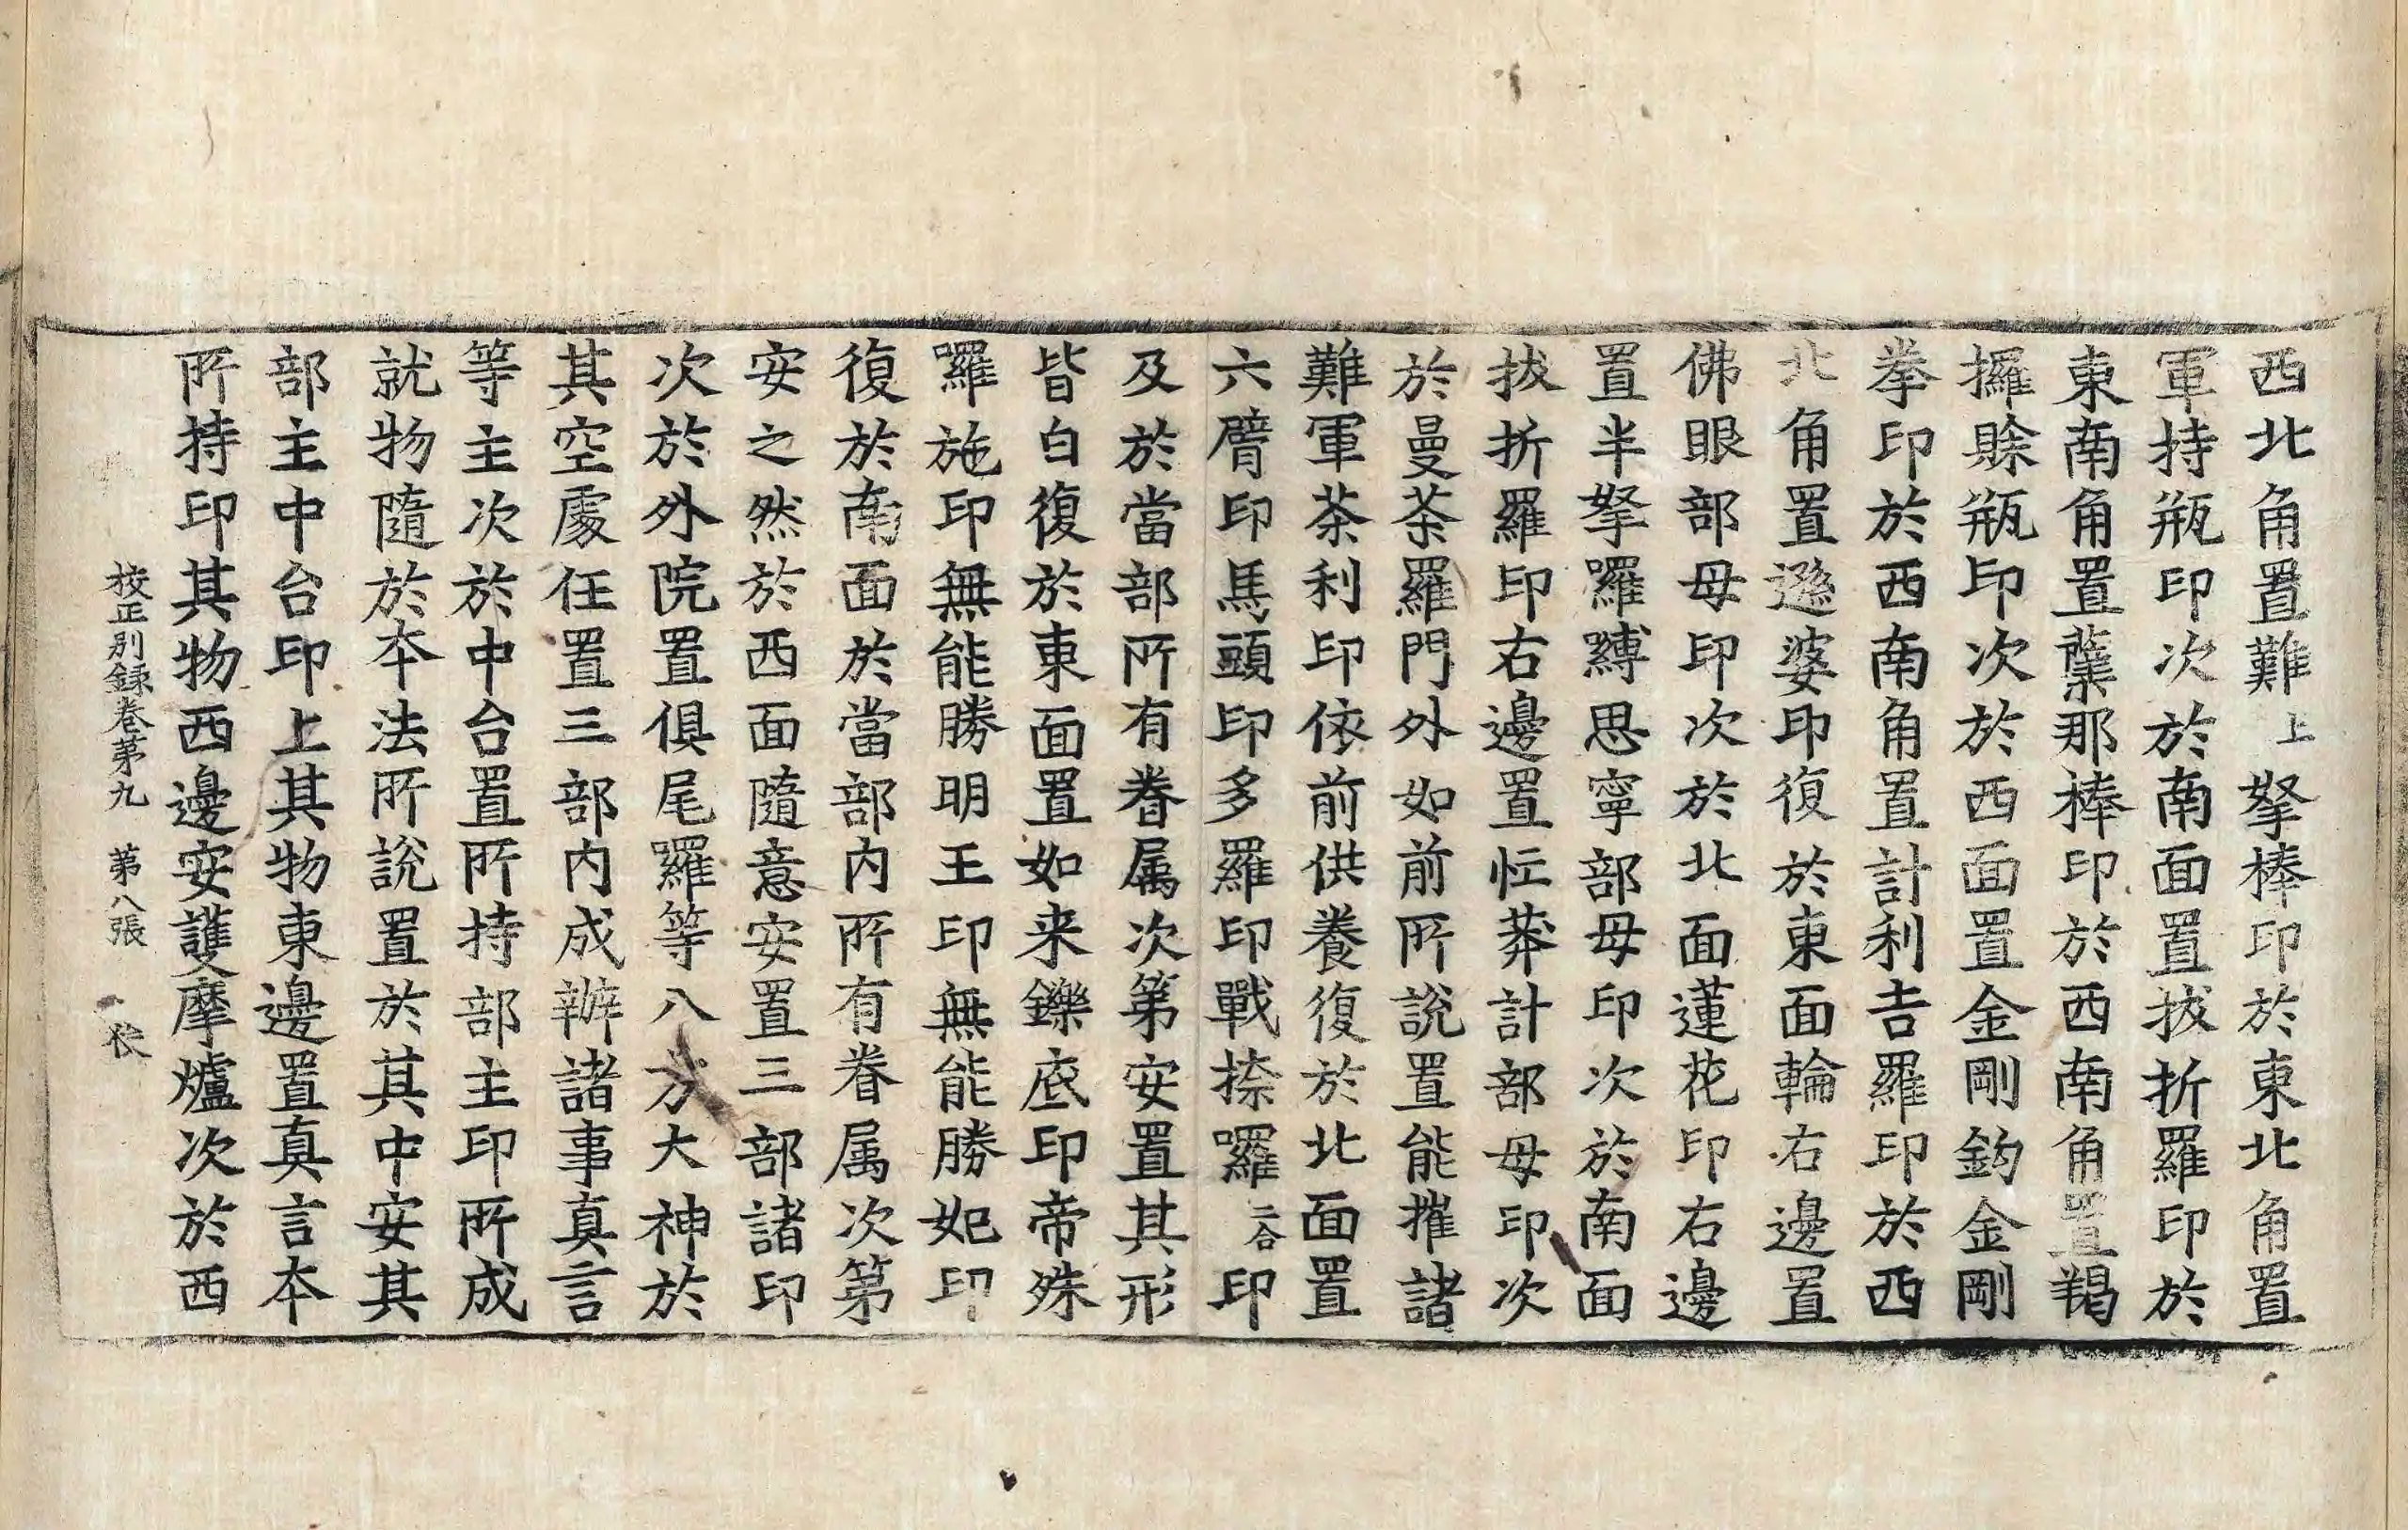 西北角置難上拏棒印於東北角置
軍持瓶印次於南面置拔折羅印於
東南角置蘖那棒印於西南角置羯
攞賒瓶印次於西面置金剛鈎金剛
拳印於西南角置計利吉羅印於西
北角置遜婆印復於東面輪右邊置
佛眼部母印次於北面蓮花印右邊
置半拏羅縛思寧部母印次於南面
拔折羅印右邊置忙莽計部母印次
於曼荼羅門外如前所說置能摧諸
難軍荼利印依前供養復於北面置
六臂印馬頭印多羅印戰捺囉二合印
及於當部所有眷属次第安置其形
皆白復於東面置如来鑠底印帝殊
羅施印無能勝明王印無能勝妃印
復於南面於當部内所有眷属次第
安之然於西面隨意安置三部諸印
次於外院置俱尾羅等八方大神於
其空處任置三部内成辦諸事真言
等主次於中台置所持部主印所成
就物隨於本法所說置於其中安其
部主中台印上其物東邊置真言本
所持印其物西邊安護摩爐次於西
校正別錄卷第九　第八張